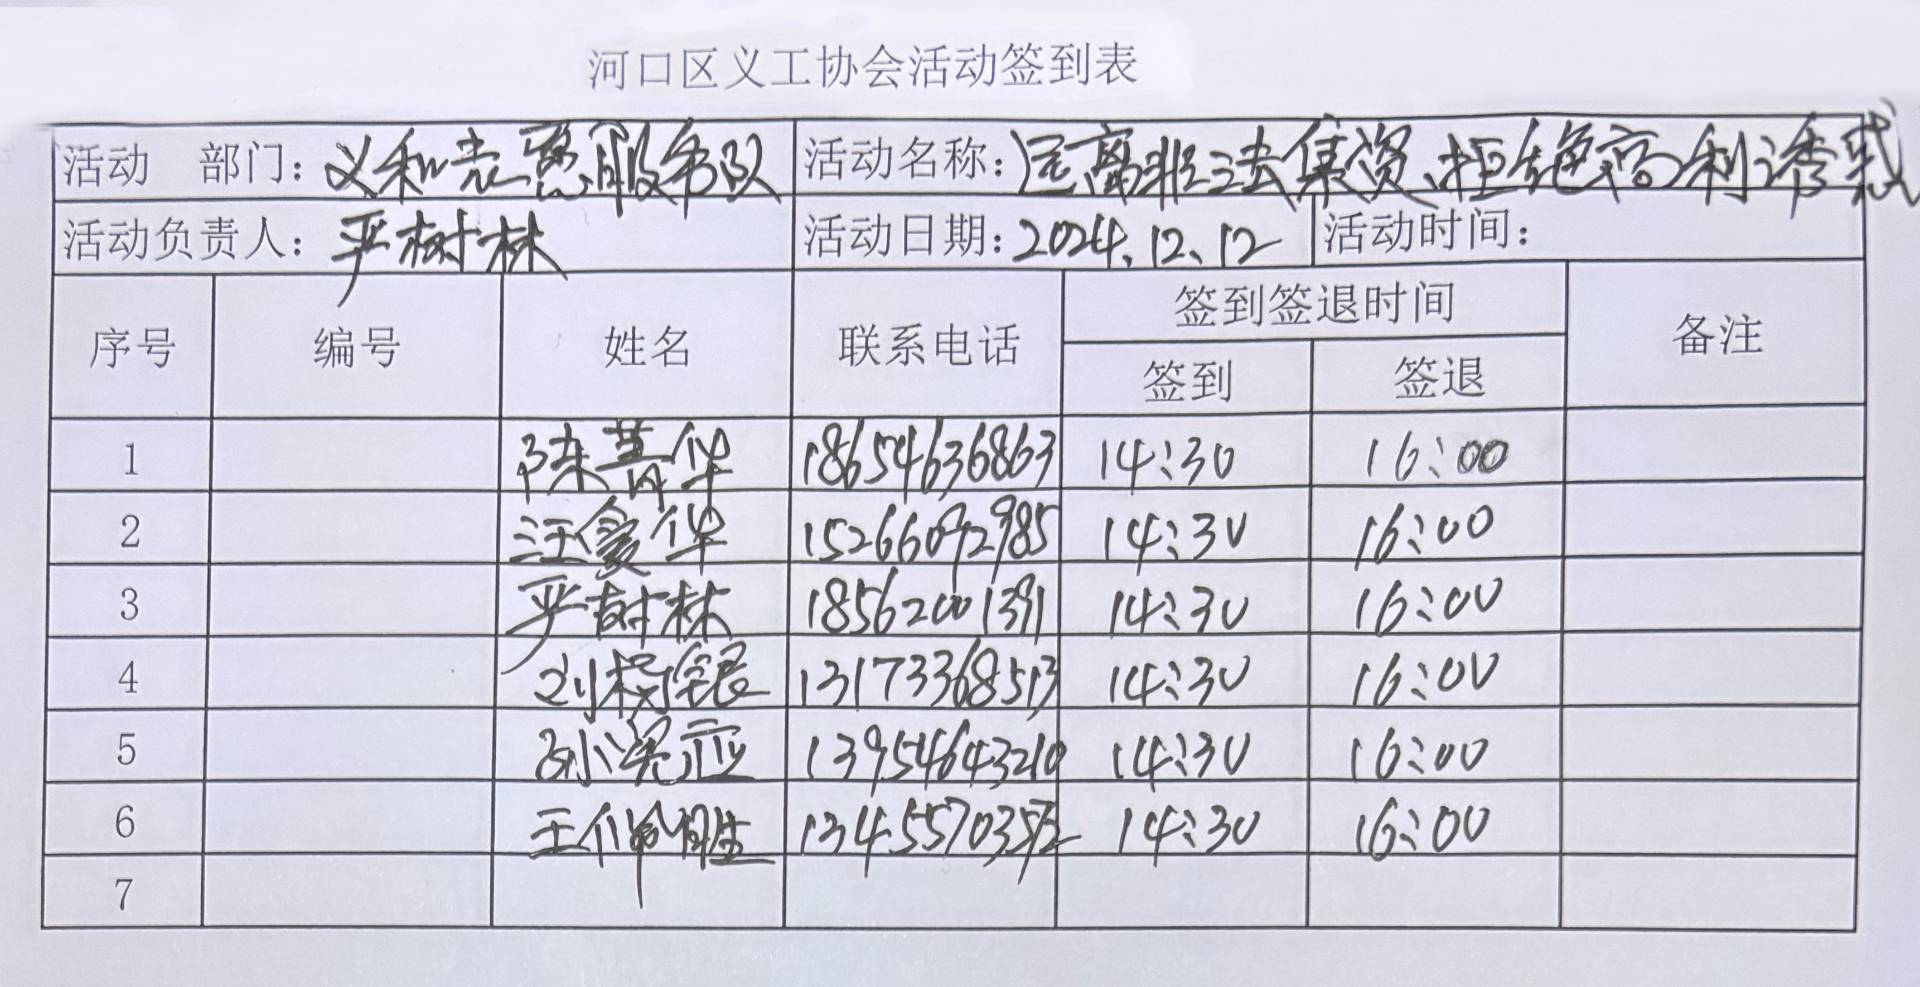 河口区义工协会活动签到表
活动 部门: 义和志愿服务队 活动名称: 远离非法集资、拒绝高利诱惑
活动负责人: 严树林 活动日期: 2024、12、12 活动时间:
序号 编号 姓名 联系电话 签到签退时间 备注
签到 签退
1 陈菁华 18654636863 14:30 16:00
2 汪 华 15266092985 14:30 16:00
3 严树林 18562001391 14:30 16:00
4 刘 银 13173368513 14:30 16:00
5 孙 13954643210 14:30 16:00
6 王佩胜 14:30 16:00
7